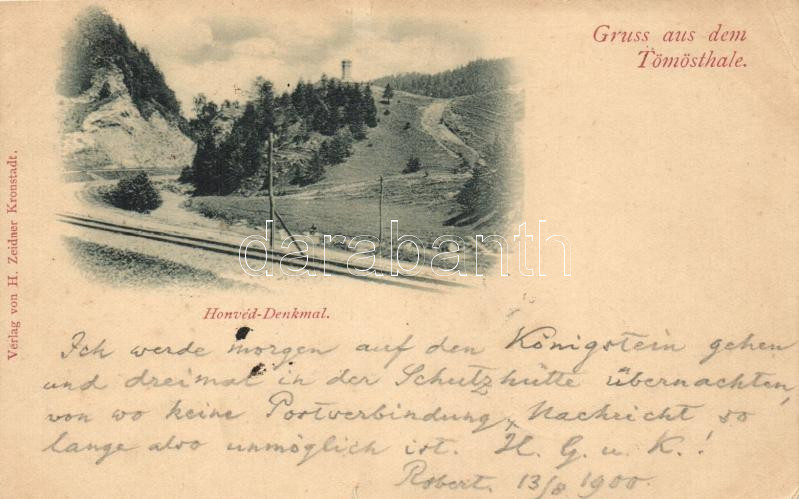 Gruss aus dem
Tömösthale.
Verlag von H. Zeidner Kronstadt.
darabanth
Honvéd-Denkmal.
Ich werde morgen auf den Königstein gehen
und dreimal in der Schutzhütte übernachten,
von wo keine Postverbindung, Nachricht so
lange also unmöglich ist. H. G. u. K.!
Robert. 13/8 1900.